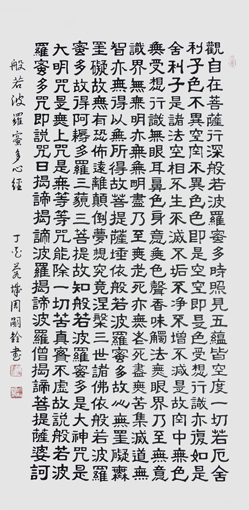 觀自在菩薩行深般若波羅蜜多時照見五蘊皆空度一切苦厄舍
利子色不異空空不異色色即是空空即是色受想行識亦復如是
舍利子是諸法空相不生不滅不垢不淨不增不減是故空中無色
無受想行識無眼耳鼻舌身意無色聲香味觸法無眼界乃至無意
識界無無明亦無無明盡乃至無老死亦無老死盡無苦集滅道無
智亦無得以無所得故菩提薩埵依般若波羅蜜多故心無罣礙無
罣礙故無有恐怖遠離顛倒夢想究竟涅槃三世諸佛依般若波羅
蜜多故得阿耨多羅三藐三菩提故知般若波羅蜜多是大神咒是
大明咒是無上咒是無等等咒能除一切苦真實不虛故說般若波
羅蜜多咒即說咒曰揭諦揭諦波羅揭諦波羅僧揭諦菩提薩婆訶
般若波羅蜜多心經 丁亥 周嗣 書